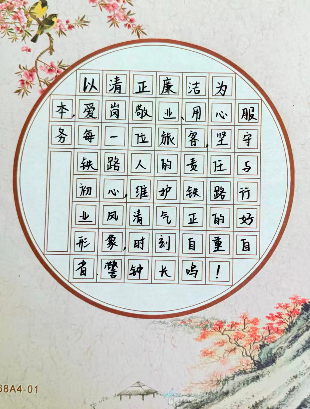 以清正廉洁为
本,爱岗敬业,用心服
务每一位旅客,坚守
铁路人的责任与
初心,维护铁路行
业风清气正的好
形象,时刻自重自
省,警钟长鸣!
68A4-01